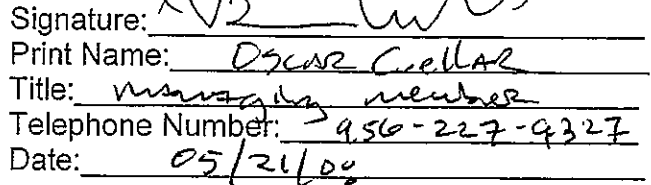 Signature:
Print Name: Oscar Cuellar
Title: managing member
Telephone Number: 956-227-9327
Date: 05/21/08